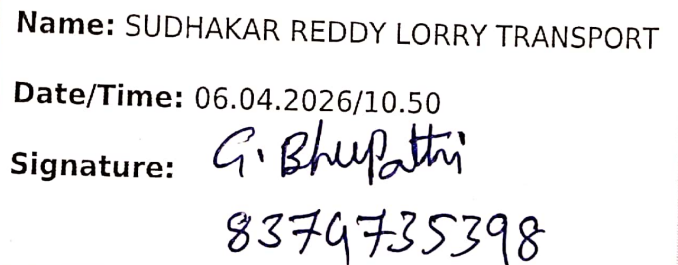 Name: SUDHAKAR REDDY LORRY TRANSPORT
Date/Time: 06.04.2026/10.50
Signature: G. Bhupathi
8379735398